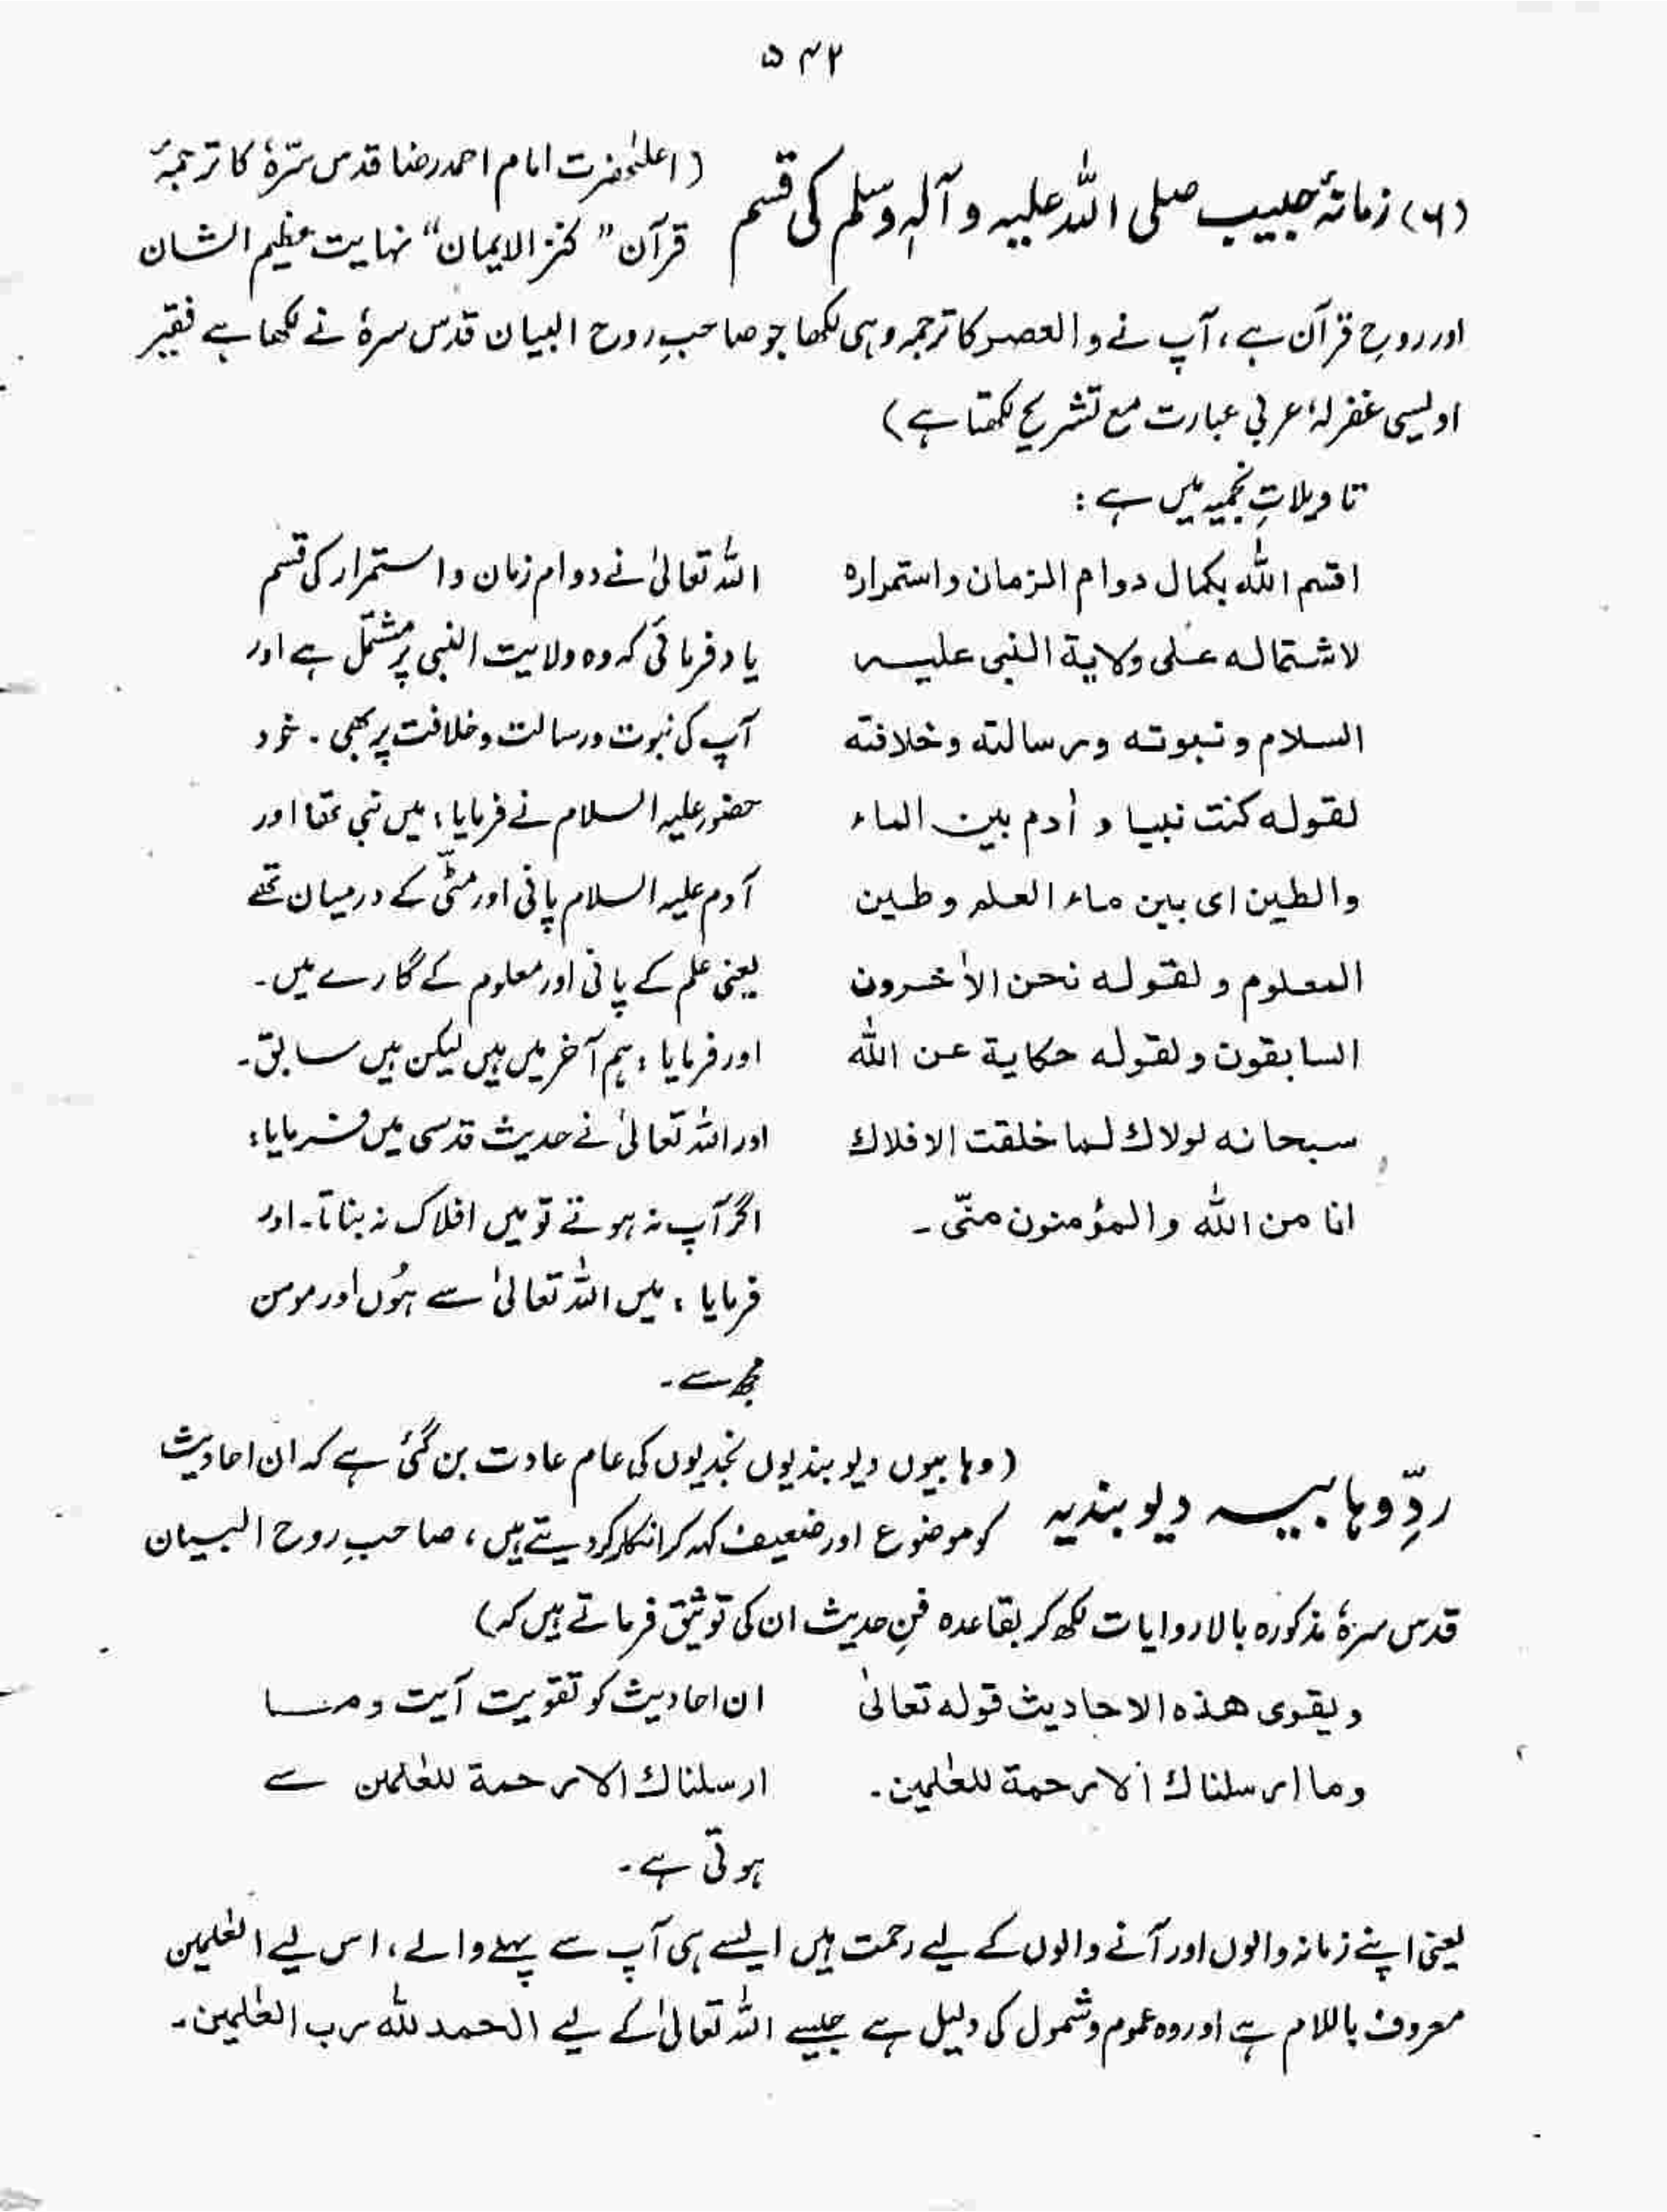 ۵۴۲
(۶) زمانۂ حبیب صلی اللہ علیہ و آلہٖ وسلم کی قسم
(اعلیٰحضرت امام احمد رضا قدس سرّہٗ کا ترجمۂ
قرآن "کنز الایمان" نہایت عظیم الشان
اور روحِ قرآن ہے، آپ نے والعصر کا ترجمہ وہی لکھا جو صاحبِ روح البیان قدس سرہٗ نے لکھا ہے فقیر
اویسی غفرلہٗ عربی عبارت مع تشریح لکھتا ہے)
تاویلاتِ نجمیہ میں ہے :
اقسم اللّٰہ بکمال دوام الزمان واستمرارہ
لاشتمالہ علی ولایة النبی علیہ
السلام و نبوتہ ورسالتہ وخلافتہ
لقولہ کنت نبیا و اٰدم بین الماء
والطین ای بین ماء العلم وطین
المعلوم ولقولہ نحن الاٰخرون
السابقون ولقولہ حکایة عن اللّٰہ
سبحانہ لولاك لما خلقت الافلاك
انا من اللّٰہ والمؤمنون منّی ۔
اللہ تعالیٰ نے دوام زمان و استمرار کی قسم
یاد فرمائی کہ وہ ولایت النبی پر مشتمل ہے اور
آپ کی نبوت ورسالت وخلافت پر بھی ۔ خود
حضور علیہ السلام نے فرمایا : میں نبی تھا اور
آدم علیہ السلام پانی اور مٹّی کے درمیان تھے
یعنی علم کے پانی اور معلوم کے گارے میں۔
اور فرمایا : ہم آخر میں ہیں لیکن ہیں سابق۔
اور اللہ تعالیٰ نے حدیث قدسی میں فرمایا :
اگر آپ نہ ہوتے تو میں افلاک نہ بناتا۔ اور
فرمایا : میں اللہ تعالیٰ سے ہُوں اور مومن
مجھ سے ۔
ردِّ وہابیہ دیوبندیہ
(وہابیوں دیوبندیوں نجدیوں کی عام عادت بن گئی ہے کہ ان احادیث
کو موضوع اور ضعیف کہہ کر انکار کر دیتے ہیں، صاحبِ روح البیان
قدس سرہٗ مذکورہ بالا روایات لکھ کر بقاعدہ فنِ حدیث ان کی توثیق فرماتے ہیں کہ)
ویقوی ھذہ الاحادیث قولہ تعالیٰ
وما ارسلناك الا رحمة للعٰلمین۔
ان احادیث کو تقویت آیت وما
ارسلناك الا رحمة للعٰلمین سے
ہوتی ہے ۔
یعنی اپنے زمانہ والوں اور آنے والوں کے لیے رحمت ہیں ایسے ہی آپ سے پہلے والے، اس لیے العٰلمین
معروف باللام ہے اور وہ عموم وشمول کی دلیل ہے جیسے اللہ تعالیٰ کے لیے الحمد للّٰہ رب العٰلمین۔